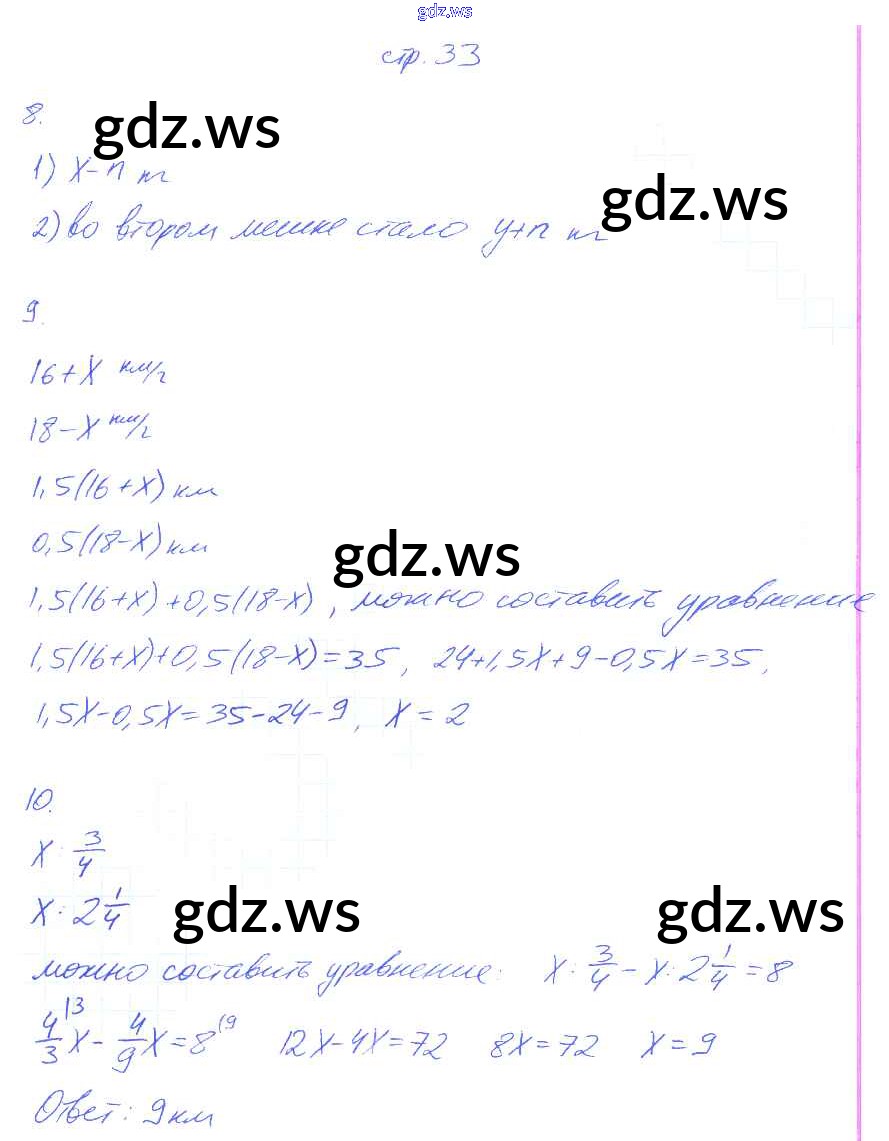 gdz.ws
стр. 33
8.
gdz.ws
1) x-n кг
gdz.ws
2) во втором мешке стало y+n кг
9.
16+x км/г
18-x км/г
1,5(16+x) км
0,5(18-x) км
gdz.ws
1,5(16+x)+0,5(18-x), можно составить уравнение
1,5(16+x)+0,5(18-x)=35, 24+1,5x+9-0,5x=35,
1,5x-0,5x=35-24-9, x=2
10.
x : 3/4
x : 2 1/4
gdz.ws gdz.ws
можно составить уравнение: x : 3/4 - x : 2 1/4 = 8
4/3 |3 x - 4/9 x = 8 |9 12x-4x=72 8x=72 x=9
Ответ: 9 км